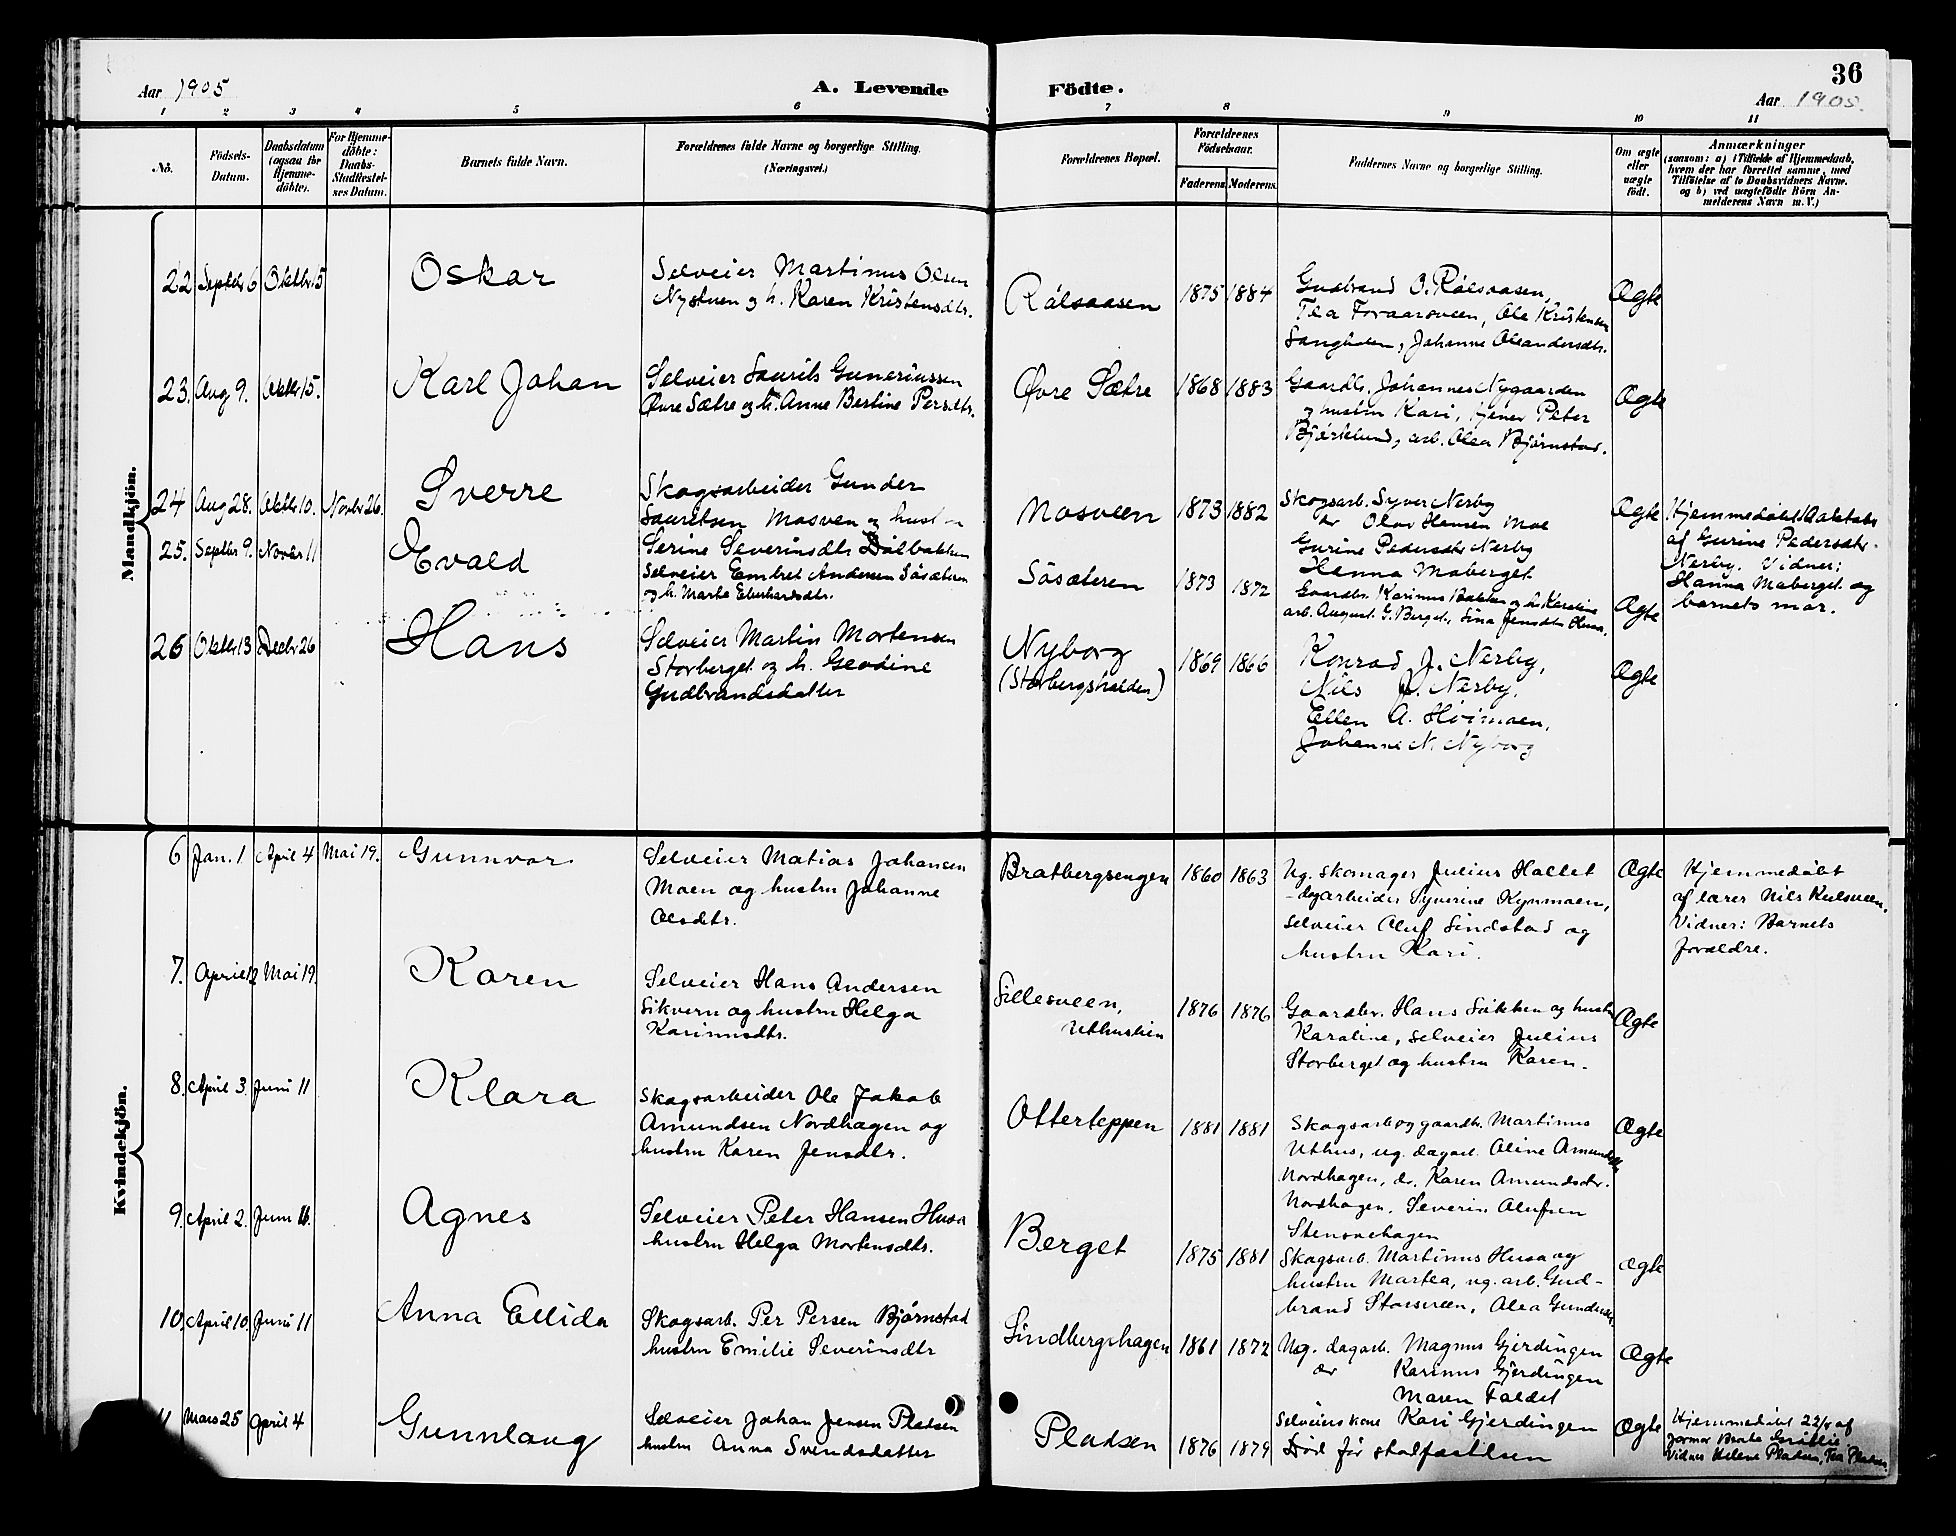 36
Aar 1905
A. Levende Födte.
Aar 1905.
1 2 3 4 5 6 7 8 9 10 11
No.
Födsels-
Datum.
Daabsdatum
(ogsaa for
Hjemme-
döbte).
For Hjemme-
döbte:
Daabs-
Stadfestel-
ses Datum.
Barnets fulde Navn.
Forældrenes fulde Navne og borgerlige Stilling.
(Næringsvei.)
Forældrenes Bopæl.
Forældrenes
Födselsaar.
Faderens Moderens.
Faddernes Navne og borgerlige Stilling.
Om ægte
eller
uægte
födt.
Anmærkninger
(saasom: a) i Tilfælde af Hjemmedaab,
hvem der har forrettet samme, med
Tilföielse af to Daabsvidners Navne.
og b) ved uægtefödte Börn An-
melderens Navn m. V.)
Mandkjön.
22 Septbr 6 Oktbr 15
Oskar
Selveier Martinus Olsen
Nystuen og h. Karen Kristensdtr.
Rålsaasen
1875 1884
Gudbrand O. Rålsaasen,
Tea Foraarsveen, Ole Kristensen
Johanne Oleandersdtr.
Ægte
23. Aug 9. Oktbr 15.
Karl Johan
Selveier Laurits Guneriussen
Øvre Sætre og h. Anne Bertine Persdtr.
Øvre Sætre
1868 1883
Gaardbr. Johannes Nygaarden
og hustru Kari, tjener Peter
Bjørklund, arb. Olea Bjørnstad.
Ægte
24 Aug 28. Oktbr 10. Novbr 26.
Sverre
Skogsarbeider Gunder
Lauritsen Mosveen og hustru
Serine Severinsdtr Dølbakken
Mosveen
1873 1882
Skogsarb. Syver Nerby
do Olav Hansen Moe
Gurine Pedersdtr Nerby
Hanna Moberget
Ægte
Hjemmedøbt
af Gurine Pedersdtr.
Nerby. Vidner:
Hanna Moberget og
barnets mor.
25. Septbr 9. Novbr 11
Evald
Selveier Embret Andersen Søsæteren
og h. Marte Eberhardsdtr.
Søsæteren
1873 1872
Gaardbr. Karinus Bakken og h. Karoline
arb. August G. Berget, Lina Jensdtr Husa.
Ægte
26 Oktbr 13 Decbr 26
Hans
Selveier Martin Mortensen
Storberget og h. Geodine
Gudbrandsdatter
Nyborg
(Storbergshalden)
1869 1866
Konrad J. Nerby,
Nils J. Nerby,
Ellen A. Høimoen,
Johanne N. Nyborg
Ægte
Kvindekjön.
6 Jan. 1 April 4 Mai 19.
Gunnvor
Selveier Matias Johansen
Moen og hustru Johanne
Olsdtr.
Bratbergsengen
1860 1863
Ug. skomager Julius Hallet
dagarbeider Syverine Kynmoen,
selveier Oluf Lindstad og
hustru Kari.
Ægte
Hjemmedøbt
af lærer Nils Kulsveen.
Vidner: Barnets
forældre.
7. April 12 Mai 19.
Karen
Selveier Hans Andersen
Sikvern og hustru Helga
Karinusdtr.
Sillesveen,
Uthuslien
1876 1876
Gaardbr. Hans Løkken og hustru
Karoline, selveier Julius
Storberget og hustru Karen.
Ægte
8. April 3. Juni 11
Klara
Skogsarbeider Ole Jakob
Amundsen Nordhagen og
hustru Karen Jensdtr.
Otterteppen
1881 1881
Skogsarb og gaardbr. Martinus
Uthus, ug. dagarb. Oline Amundsdtr
Nordhagen, do. Karen Amundsdtr.
Nordhagen, Severin Olufsen
Stensoehagen
Ægte
9. April 2. Juni 16.
Agnes
Selveier Peter Hansen Husa
hustru Helga Mortensdtr.
Berget
1875 1881
Skogsarb. Martinus Husa og
hustru Martea, ug. arb. Gud-
brand Storsveen, Olea Gundersdtr
Ægte
10. April 10. Juni 11
Anna Ellida
Skogsarb. Per Persen Bjørnstad
hustru Emilie Severinsdtr
Lindbergshagen
1861 1872
Ug. dagarb. Magnus Gjerdingen
do Karinus Gjerdingen
Maren Faldet
Selveierskone Kari Gjerdingen
Ægte
Mars 25 April 4
Gunnlaug
Selveier Johan Jensen Pladsen
hustru Anna Svendsdatter
Pladsen
1876 1879
Død før stadfæstelsen
Ægte
Hjemmedøbt 22/4 af
jormor Berte
Vidner Helene Pladsen, Tea Pladsen.